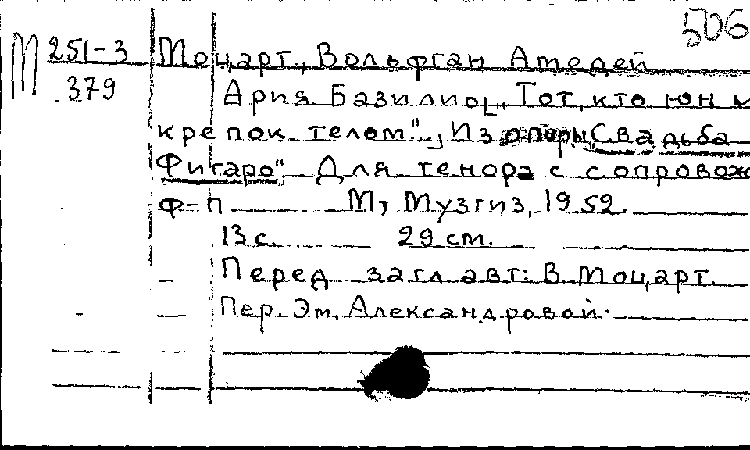 506
М 251-3 Моцарт, Вольфган Амедей
379 Ария Базилио „Тот, кто юн и
крепок телом", Из оперы „Свадьба
Фигаро" Для тенора с сопровож
ф-п М, Музгиз, 1952.
13 с. 29 cm.
Перед загл авт: В. Моцарт
Пер. Эм. Александровой.